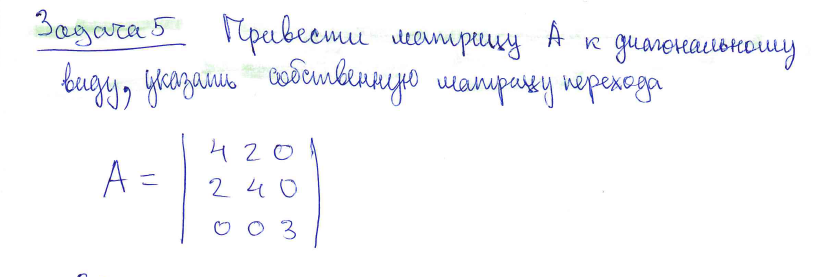 Задача 5 Привести матрицу A к диагональному
виду, указать собственную матрицу перехода
A = | 4 2 0 |
| 2 4 0 |
| 0 0 3 |